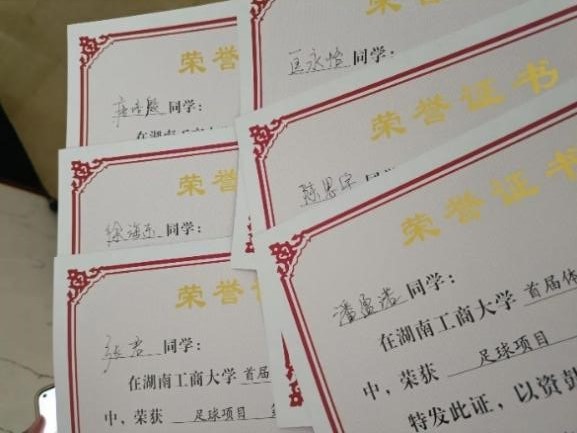 荣誉
同学：
在湖南
荣誉证书
匡永怡 同学：
荣誉
徐海 同学：
荣誉证书
陈思宇
荣誉
张君 同学：
在湖南工商大学 首届
中，荣获 足球项目
荣誉证书
潘盈 同学：
在湖南工商大学 首届体
中，荣获 足球项目
特发此证，以资